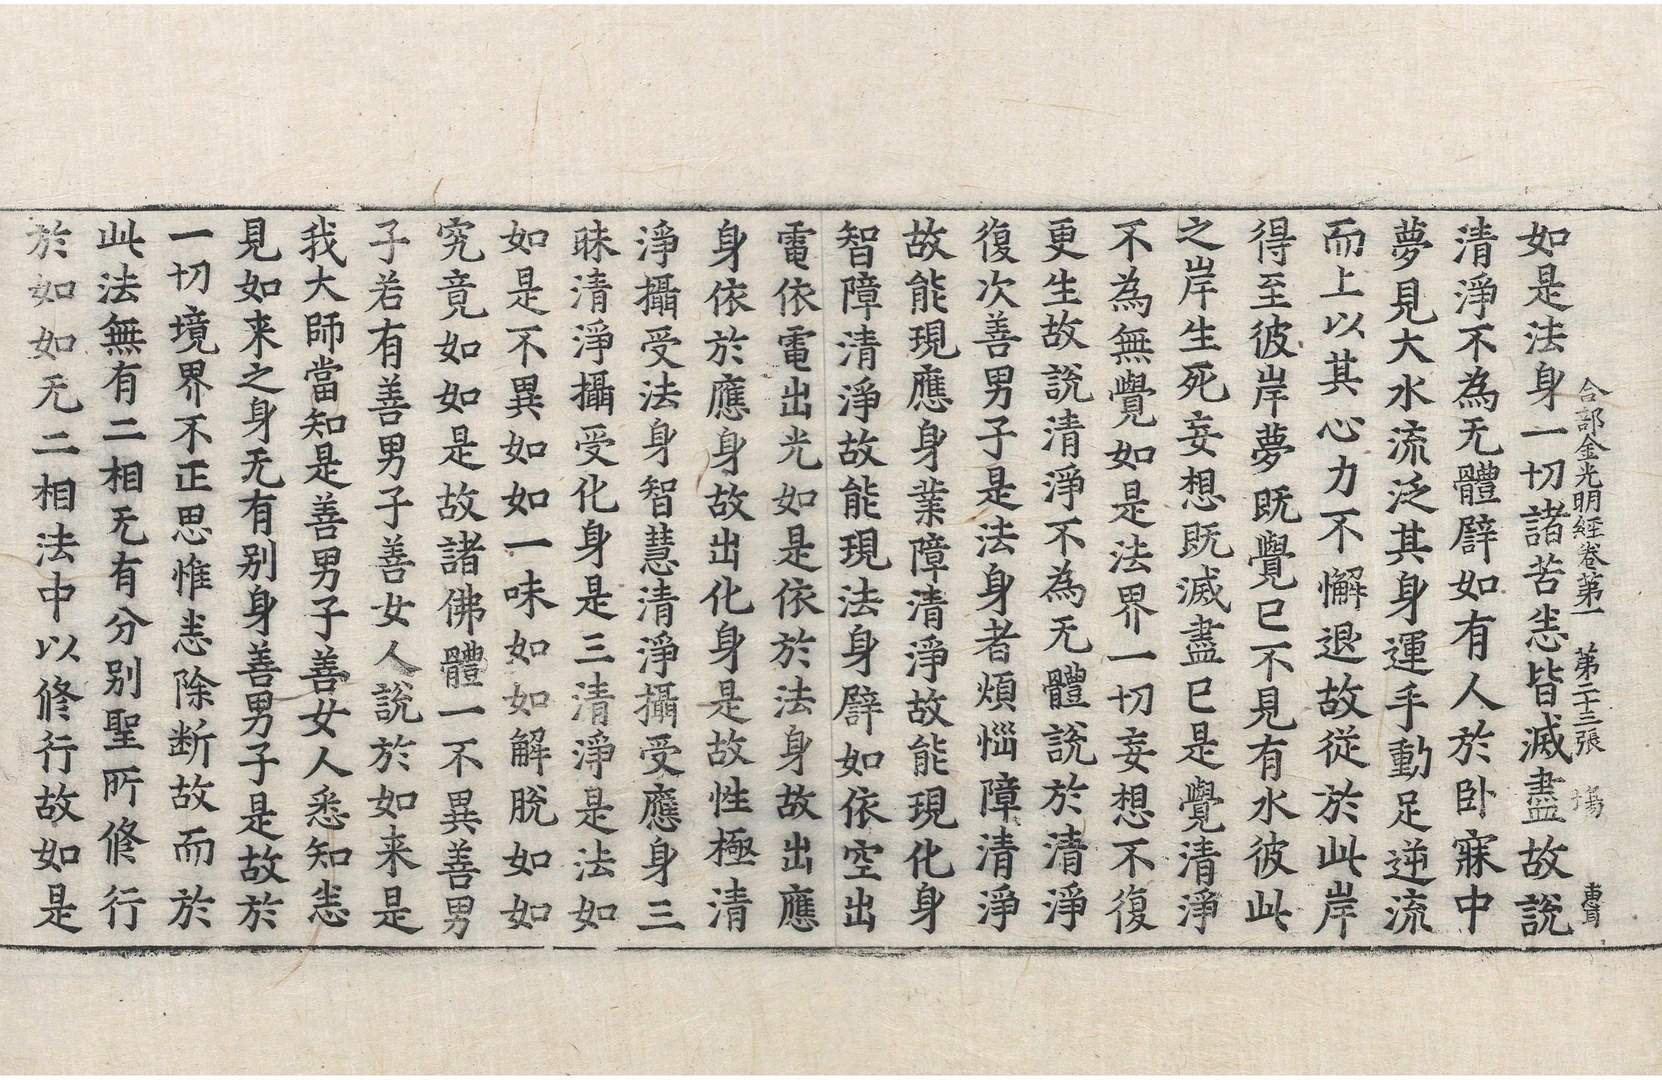 合部金光明經卷第一　第二十三張　場　惠眞
如是法身一切諸苦恙皆滅盡故説
清淨不為无體譬如有人於卧寐中
夢見大水流泛其身運手動足逆流
而上以其心力不懈退故従於此岸
得至彼岸夢既覺已不見有水彼此
之岸生死妄想既滅盡已是覺清淨
不為無覺如是法界一切妄想不復
更生故説清淨不為无體説於清淨
復次善男子是法身者煩惱障清淨
故能現應身業障清淨故能現化身
智障清淨故能現法身譬如依空出
電依電出光如是依於法身故出應
身依於應身故出化身是故性極清
淨攝受法身智慧清淨攝受應身三
昧清淨攝受化身是三清淨是法如
如是不異如如一味如如解脱如如
究竟如如是故諸佛體一不異善男
子若有善男子善女人説於如来是
我大師當知是善男子善女人悉知恙
見如来之身无有别身善男子是故於
一切境界不正思惟恙除断故而於
此法無有二相无有分别聖所修行
於如如无二相法中以修行故如是